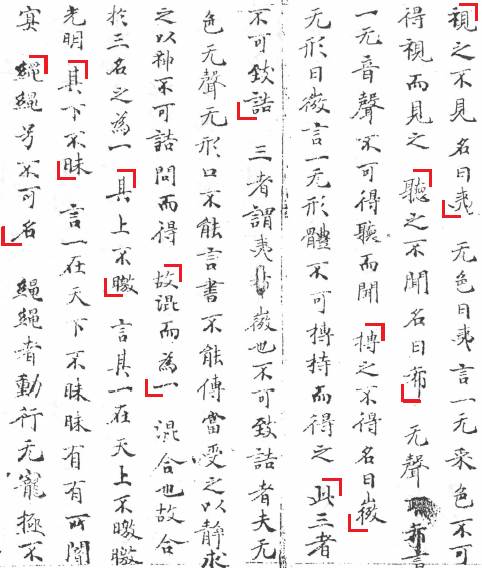 視之不見名曰夷 无色曰夷言一无采色不可
得視而見之 聽之不聞名曰希 无聲曰希言
一无音聲不可得聽而聞 摶之不得名曰微
无形曰微言一无形體不可摶持而得之 此三者
不可致詰 三者謂夷希微也不可致詰者夫无
色无聲无形口不能言書不能傳當受之以靜求
之以神不可詰問而得 故混而為一 混合也故合
於三名之為一 其上不曒 言其一在天上不曒曒
光明 其下不昧 言一在天下不昧昧有有所闇
冥 繩繩兮不可名 繩繩者動行无寵極不